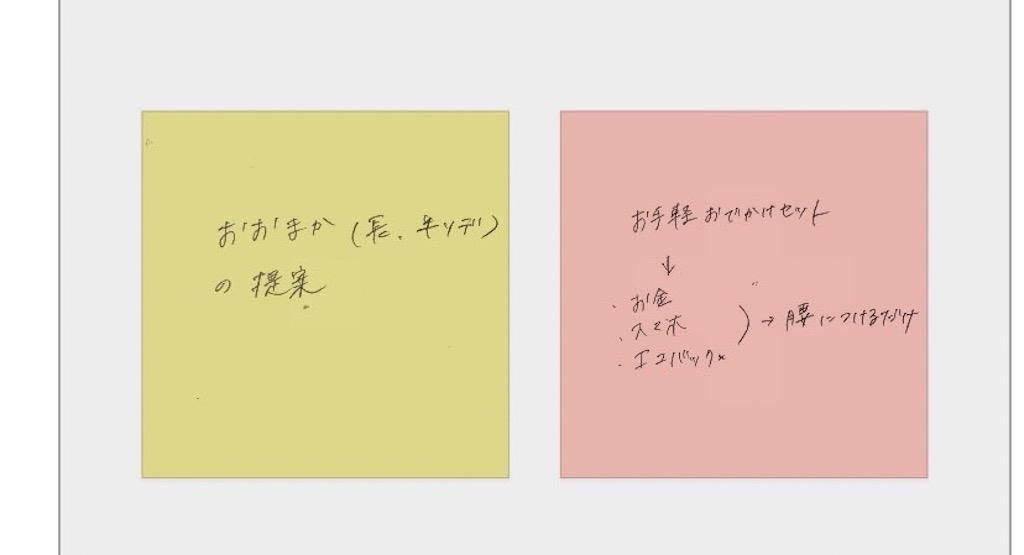 おおまか(長、半ソデ)
の提案
お手軽おでかけセット
↓
・お金
・スマホ
・エコバック
)→腰につけるだけ